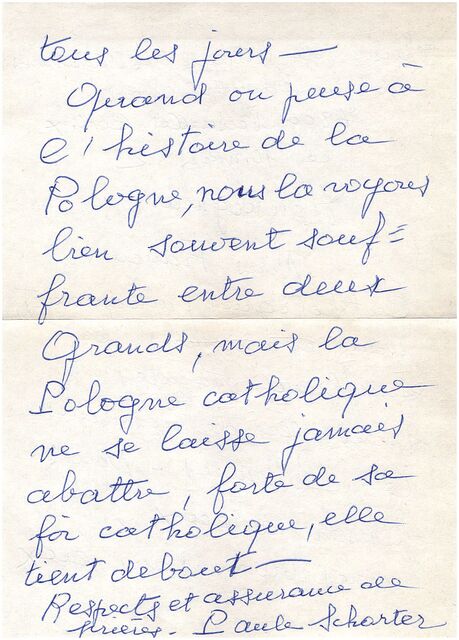 tous les jours —
Quand on pense à
l'histoire de la
Pologne, nous la voyons
bien souvent souf=
frante entre deux
Grands, mais la
Pologne catholique
ne se laisse jamais
abattre, forte de sa
foi catholique, elle
tient debout —
Respects et assurance de
prières. Paule Schorter